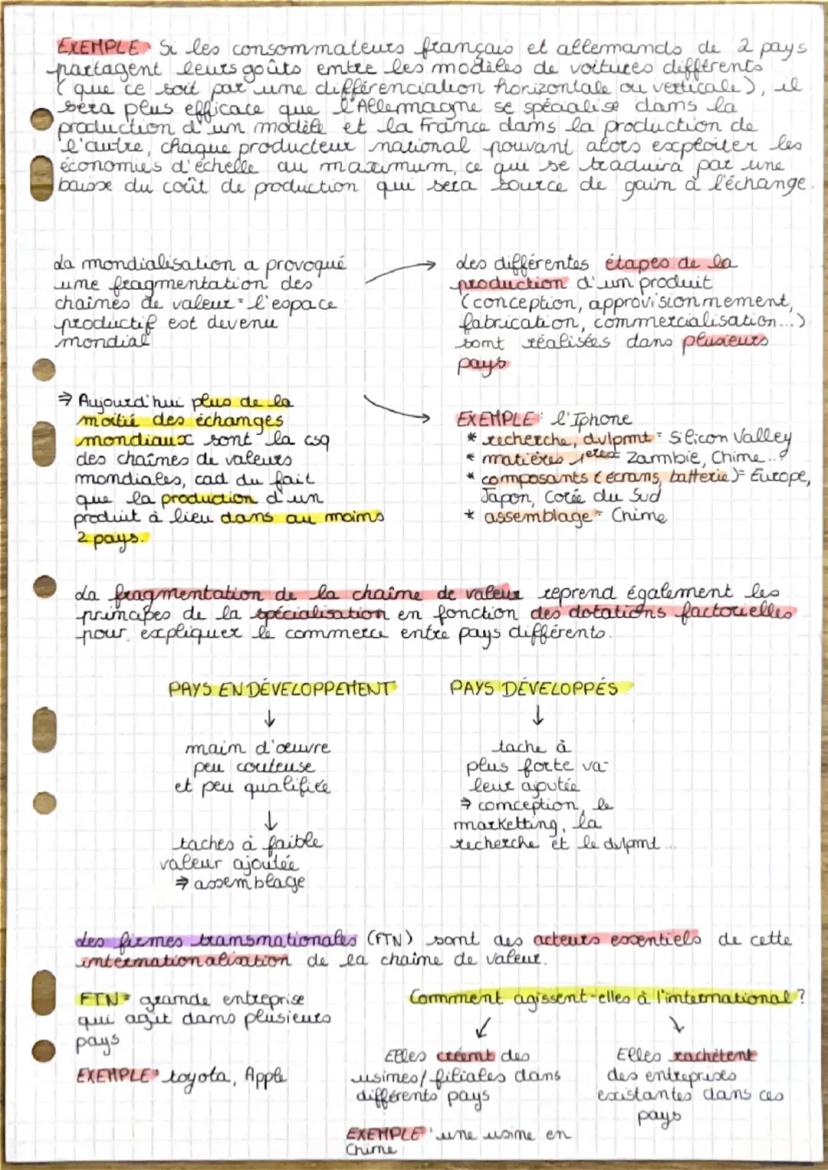 EXEMPLE Si les consommateurs français et allemands de 2 pays
partagent leurs goûts entre les modèles de voitures différents
(que ce soit par une différenciation horizontale ou verticale), il
sera plus efficace que l'Allemagne se spécialise dans la
production d'un modèle et la France dans la production de
l'autre, chaque producteur national pouvant alors exploiter les
économies d'échelle au maximum, ce qui se traduira par une
baisse du coût de production qui sera source de gain à l'échange.
La mondialisation a provoqué
une fragmentation des
chaînes de valeur = l'espace
productif est devenu
mondial
Les différentes étapes de la
production d'un produit
(conception, approvisionnement,
fabrication, commercialisation...)
sont réalisées dans plusieurs
pays
⇒ Aujourd'hui plus de la
moitié des échanges
mondiaux sont la csq
des chaînes de valeurs
mondiales, cad du fait
que la production d'un
produit à lieu dans au moins
2 pays.
EXEMPLE : l'Iphone
* recherche, dvlpmt = Silicon Valley
* matières 1ères = Zambie, Chine...
* composants (écrans, batterie) = Europe,
Japon, Corée du Sud
* assemblage = Chine
La fragmentation de la chaîne de valeur reprend également les
principes de la spécialisation en fonction des dotations factorielles
pour expliquer le commerce entre pays différents.
PAYS EN DÉVELOPPEMENT
↓
main d'œuvre
peu couteuse
et peu qualifiée
↓
taches à faible
valeur ajoutée
⇒ assemblage
PAYS DÉVELOPPÉS
↓
tache à
plus forte va-
leur ajoutée
⇒ conception, le
marketting, la
recherche et le dvlpmt...
Les firmes transnationales (FTN) sont des acteurs essentiels de cette
internationalisation de la chaîne de valeur.
FTN = grande entreprise
qui agit dans plusieurs
pays
EXEMPLE : toyota, Apple
Comment agissent-elles à l'international ?
Elles créent des
usines/filiales dans
différents pays
EXEMPLE : une usine en
Chine
Elles rachètent
des entreprises
existantes dans ces
pays